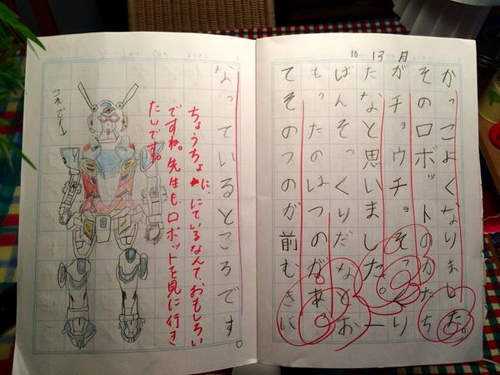 10 13 月
かっこよくなりました。
そのロボットのかたち
がチョウチョそっくり
だなと思いました。一
ばんそっくりだなとお
もったのはつのがあっ
てそのつのが前むきに
なっているところです。
ちょうちょに、にているなんて、おもしろい
ですね。先生もロボットを見に行き
たいです。